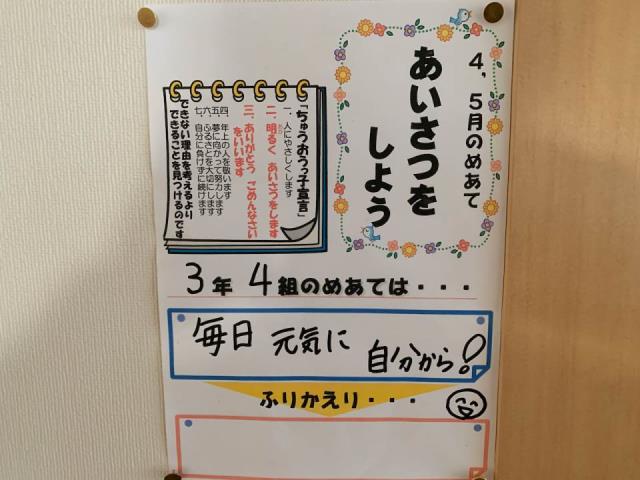 4，5月のめあて
あいさつを
しよう
「ちゅうおうっ子宣言」
一、人にやさしくします
二、明るく あいさつをします
三、ありがとう ごめんなさい
をいいます
四、年上の人を敬います
五、夢に向かって努力します
六、ふるさとを大切にします
七、自分に負けずに続けます
できない理由を考えるより
できることを見つけるのです
3年 4組のめあては・・・
毎日 元気に 自分から!
ふりかえり・・・